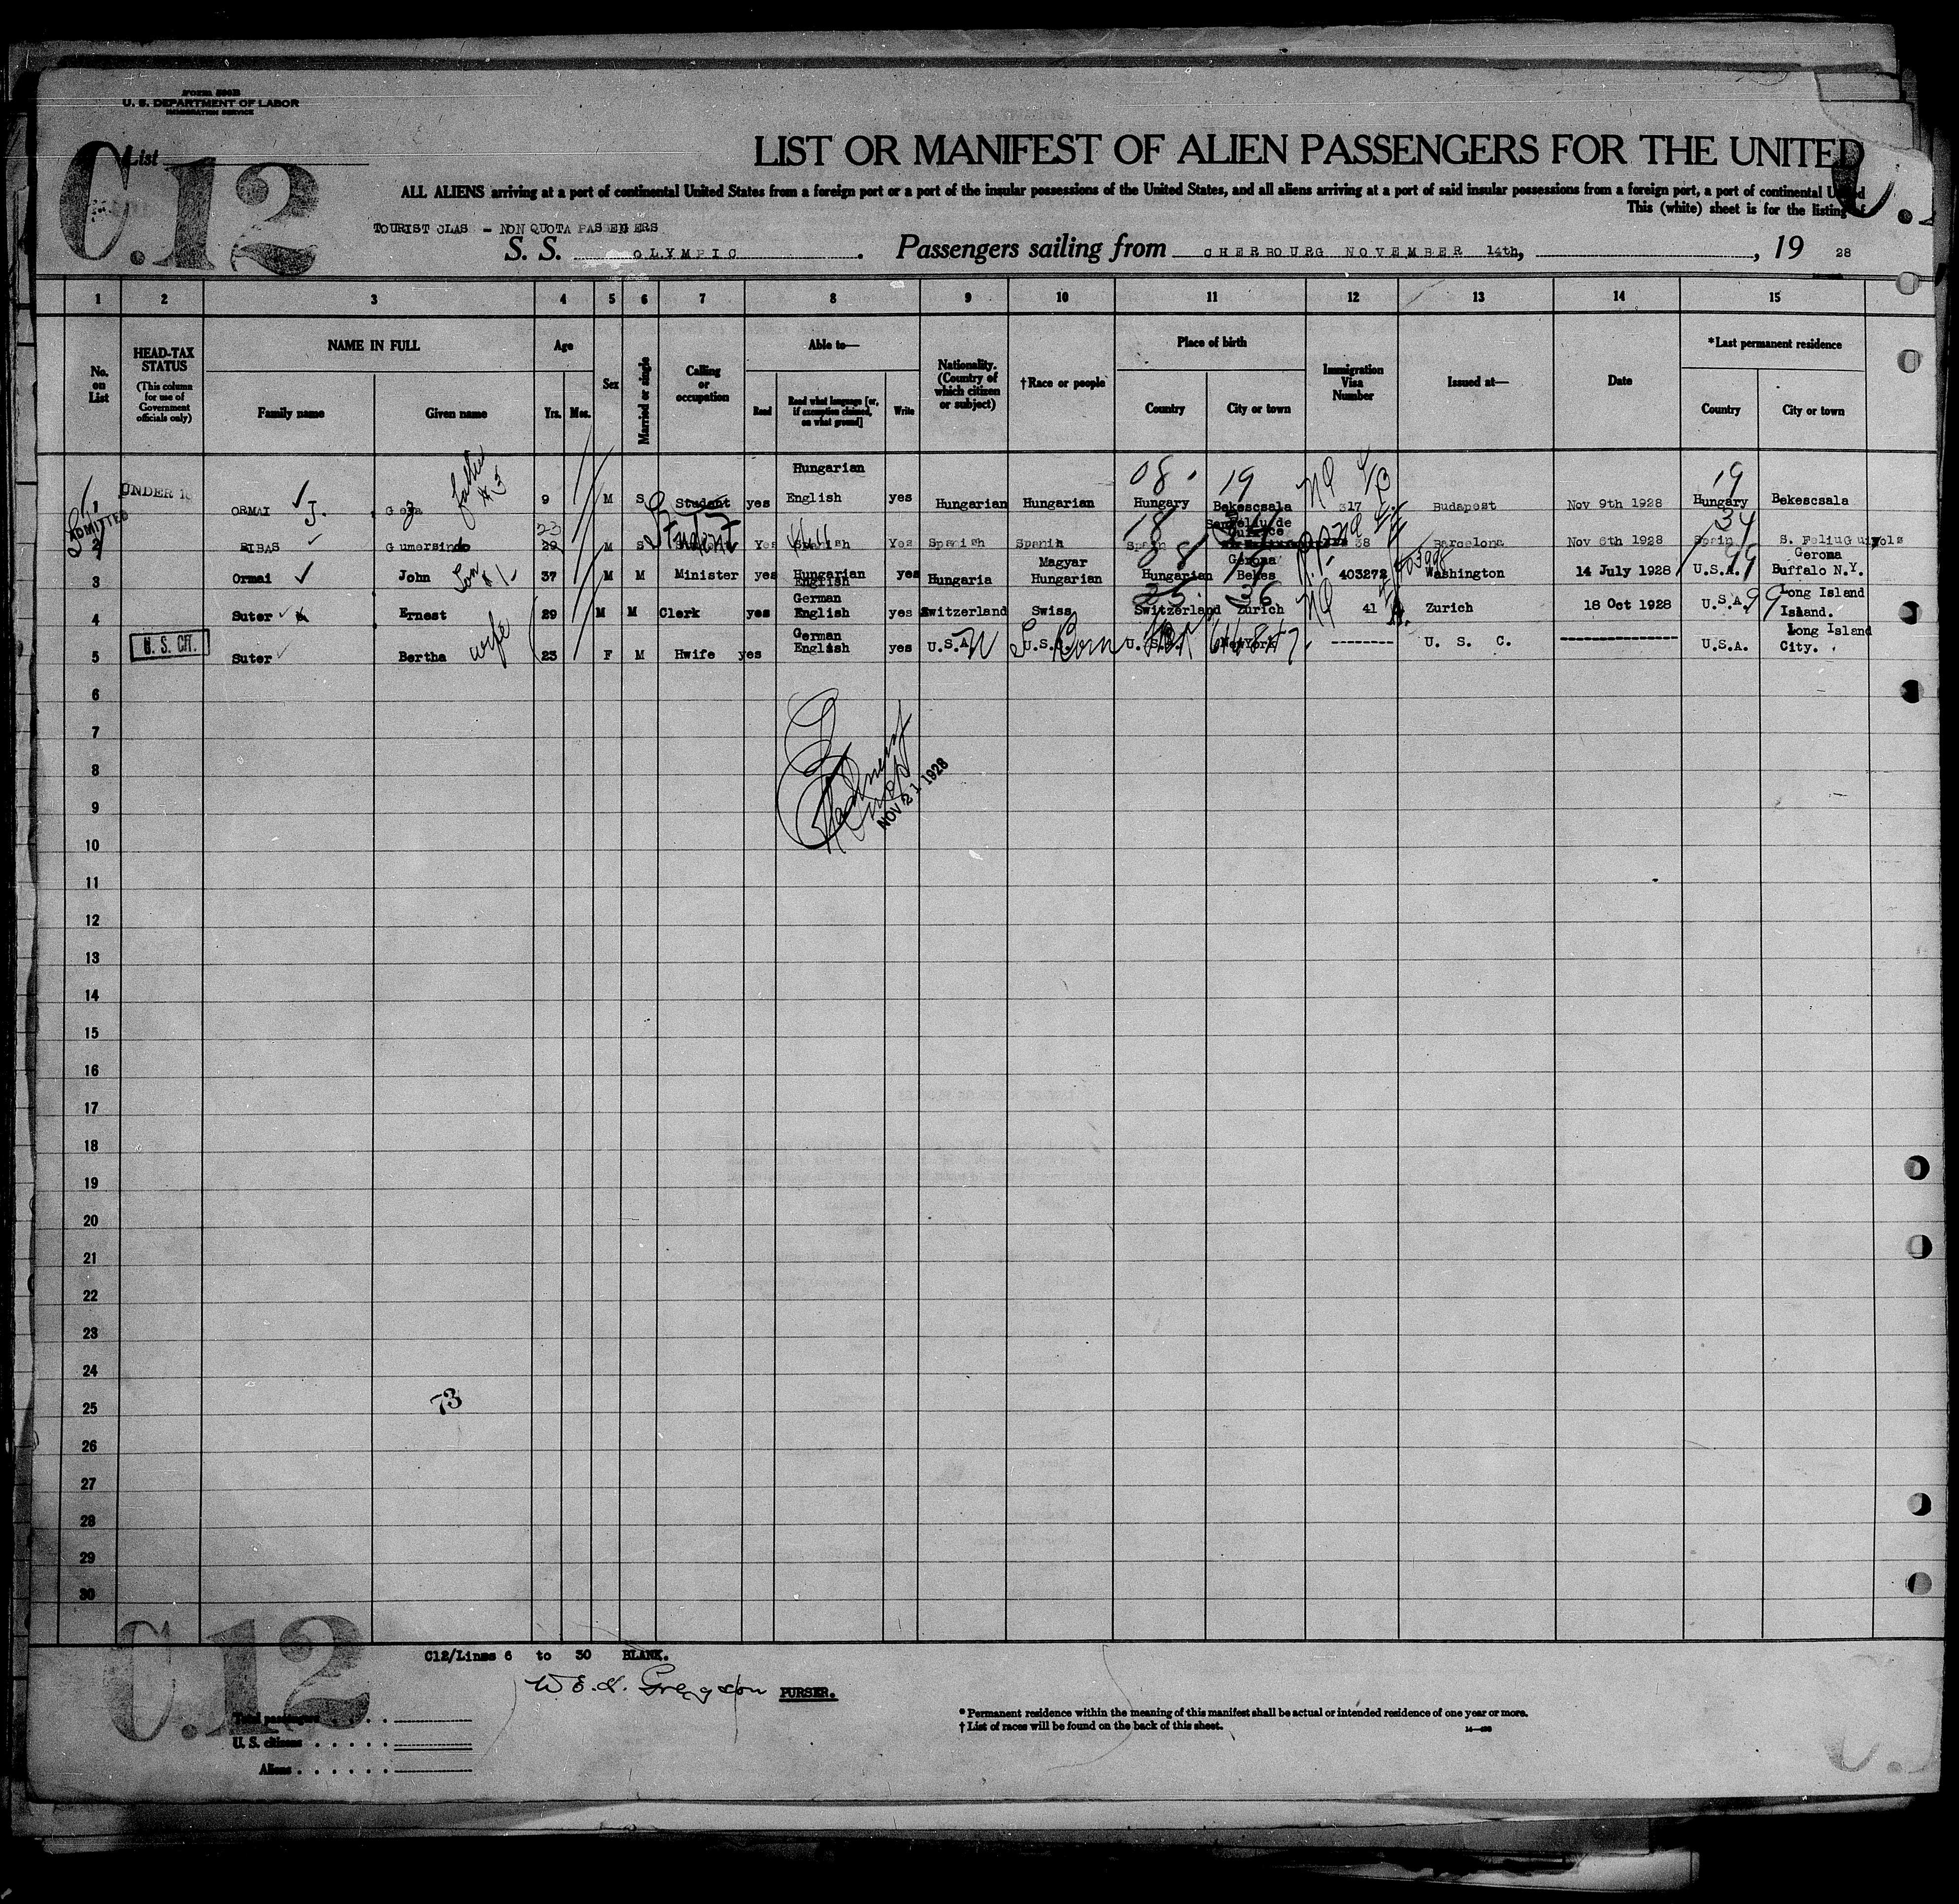 FORM 500B
U. S. DEPARTMENT OF LABOR
IMMIGRATION SERVICE
List
C.12
LIST OR MANIFEST OF ALIEN PASSENGERS FOR THE UNITED
ALL ALIENS arriving at a port of continental United States from a foreign port or a port of the insular possessions of the United States, and all aliens arriving at a port of said insular possessions from a foreign port, a port of continental United
This (white) sheet is for the listing of
TOURIST CLAS - NON QUOTA PASSENGERS
S. S. OLYMPIC. Passengers sailing from CHERBOURG NOVEMBER 14th, , 19 28
1 2 3 4 5 6 7 8 9 10 11 12 13 14 15
No. on List
HEAD-TAX STATUS (This column for use of Government officials only)
NAME IN FULL
Family name Given name
Age
Yrs. Mos.
Sex
Married or single
Calling or occupation
Able to—
Read Read what language [or, if exemption claimed, on what ground] Write
Nationality. (Country of which citizen or subject)
†Race or people
Place of birth
Country City or town
Immigration Visa Number
Issued at—
Date
*Last permanent residence
Country City or town
1 UNDER 16 ORMAI J. Geza father #3 9 M S Student yes Hungarian English yes Hungarian Hungarian 08 Hungary 19 Bekescsala NQ 317 Budapest Nov 9th 1928 19 Hungary Bekescsala
ADMITTED
2 RIBAS Gumersindo 23 29 M S Student Yes Spanish Yes Spanish Spanish 18 Spain Gerona 38 Barcelona Nov 6th 1928 34 Spain S. Feliu Guixols Gerona
3 Ormai John Son #1- 37 M M Minister yes Hungarian English yes Hungaria Magyar Hungarian Hungarian Bekes 403272 Washington 14 July 1928 U.S.A. 99 Buffalo N.Y.
4 Suter Ernest 29 M M Clerk yes German English yes Switzerland Swiss 25 Switzerland 36 Zurich NQ 41 Zurich 18 Oct 1928 U.S.A. 99 Long Island Island.
5 U. S. CIT. Suter Bertha wife 23 F M Hwife yes German English yes U.S.A. U.S. Born U.S.A. NewYork -------- U. S. C. -------- U.S.A. Long Island City.
6
7
8
NOV 21 1928
9
10
11
12
13
14
15
16
17
18
19
20
21
22
23
24
73
25
26
27
28
29
30
C.12
C12/Lines 6 to 30 BLANK.
W E. H. Gregson PURSER.
Total passengers . . . . .
U. S. citizens . . . . .
Aliens . . . . . .
* Permanent residence within the meaning of this manifest shall be actual or intended residence of one year or more.
† List of races will be found on the back of this sheet.